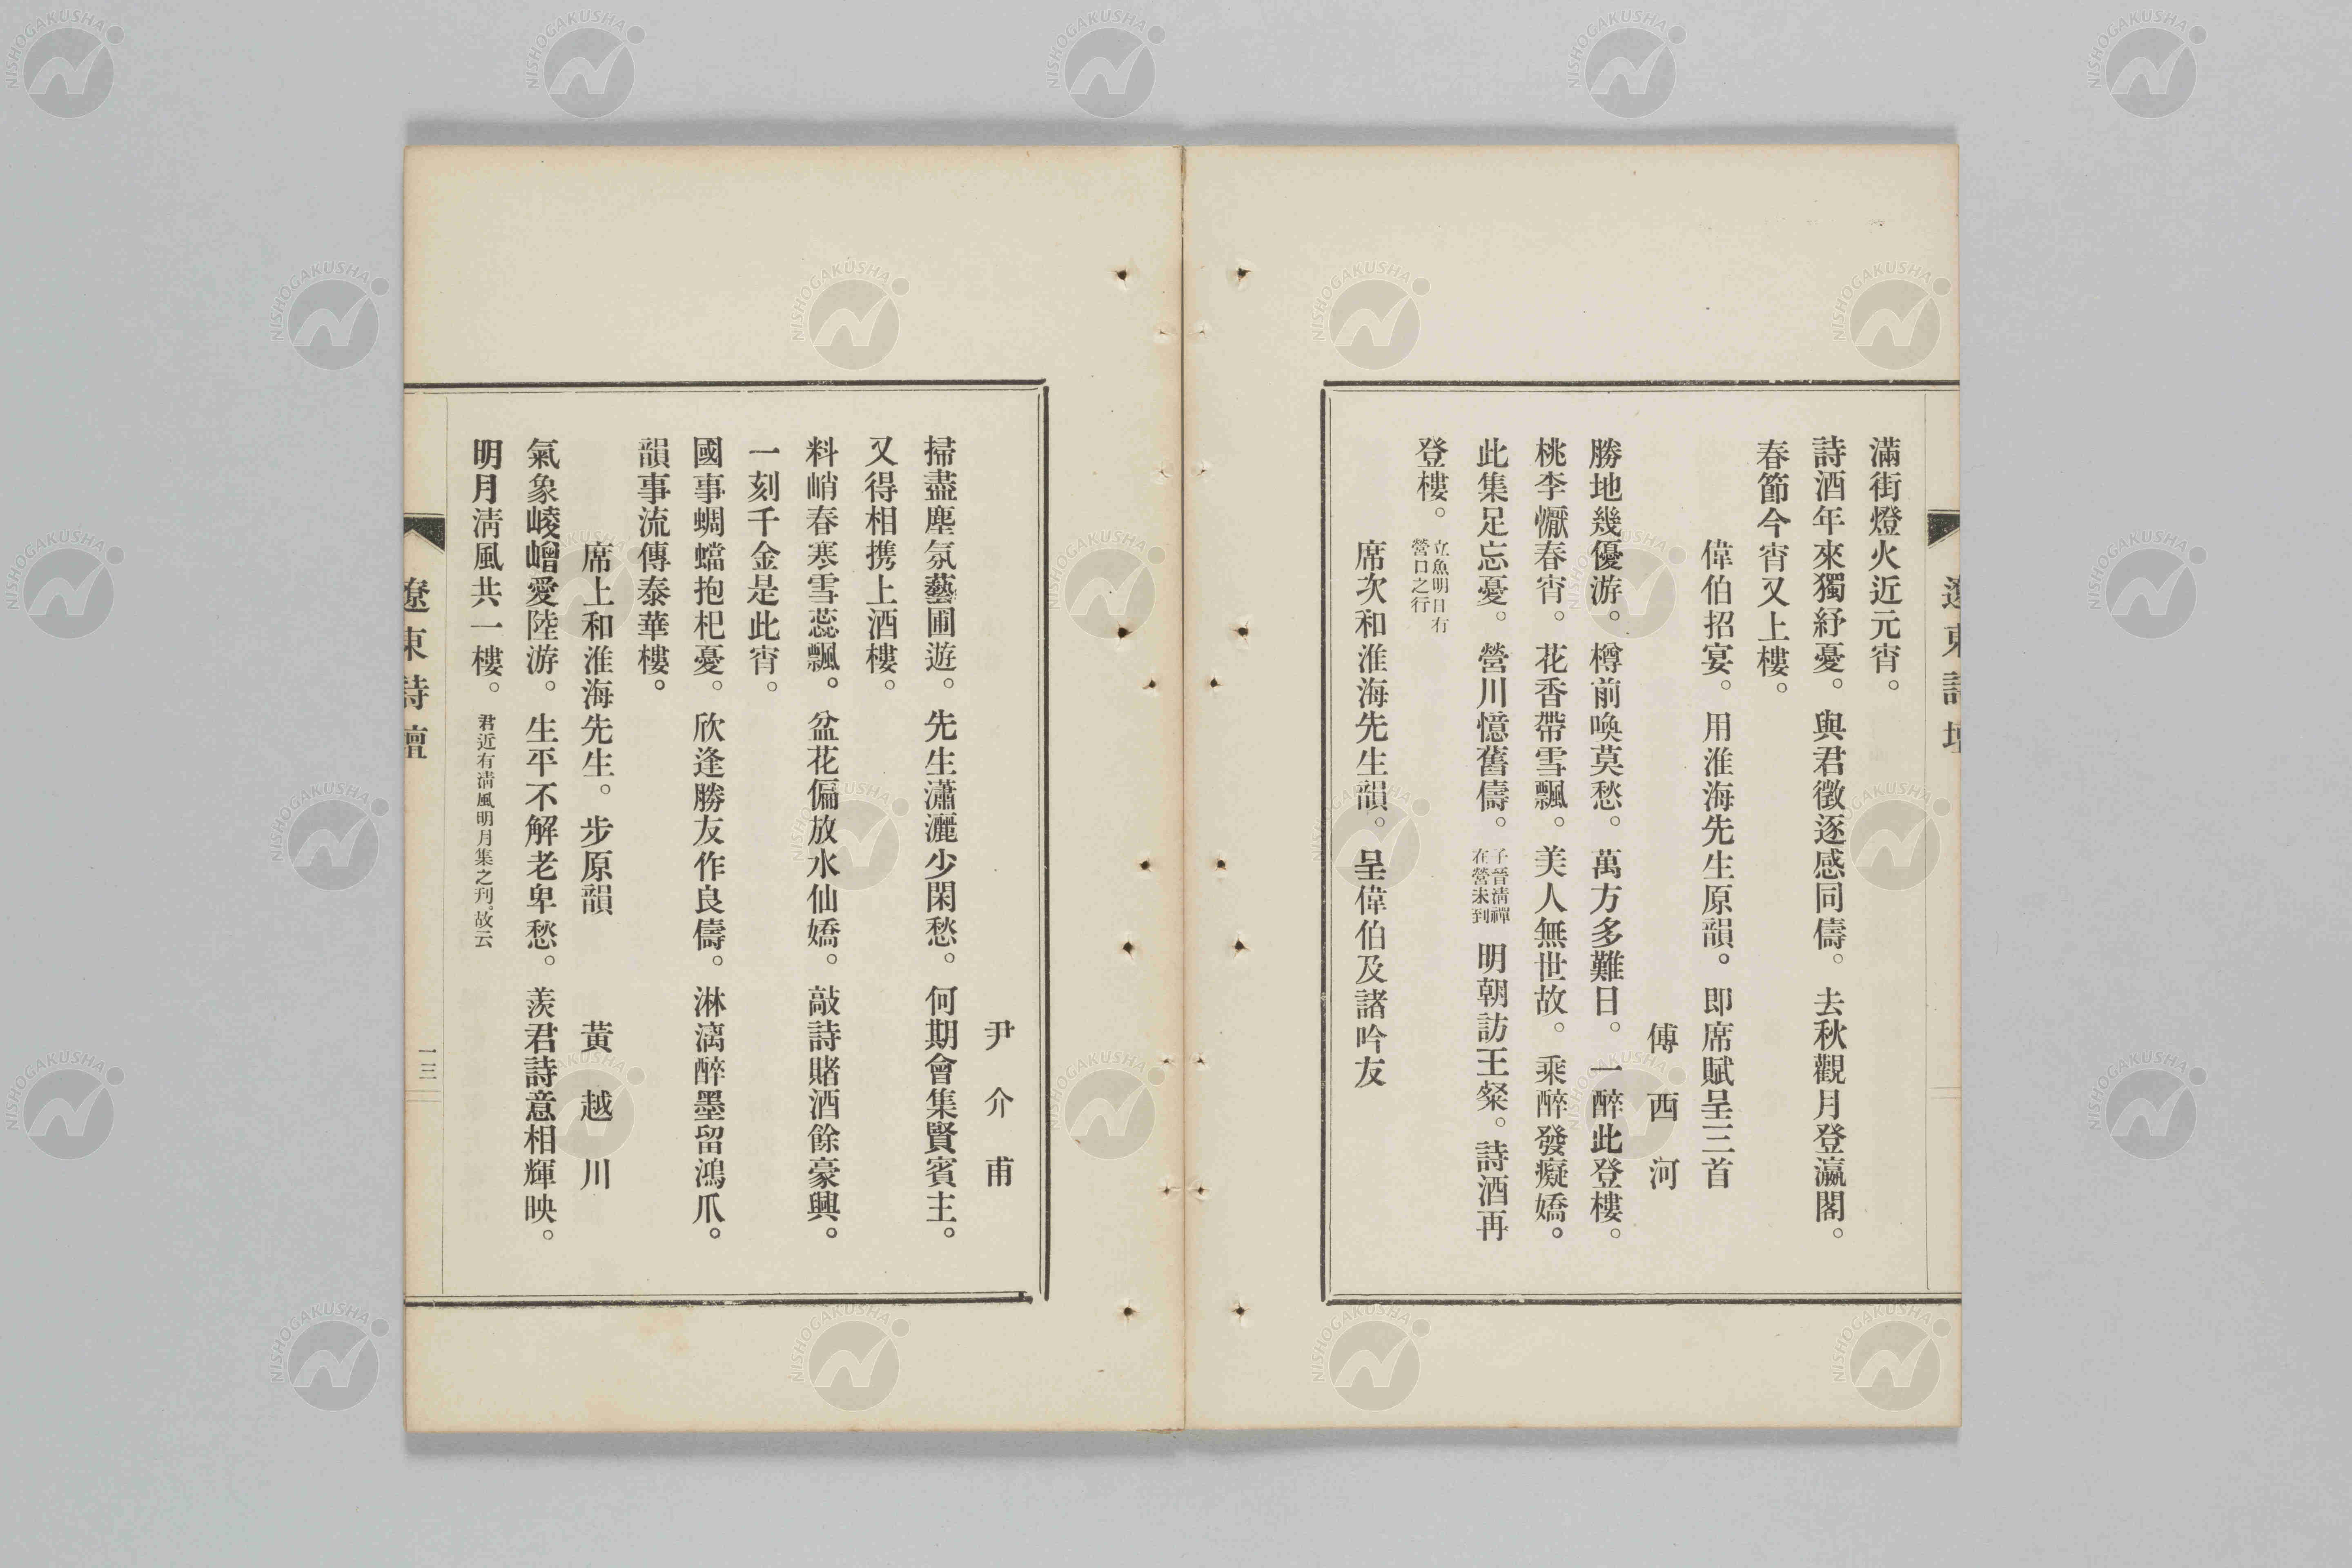 滿街燈火近元宵。
詩酒年來獨紓憂。與君徵逐感同儔。去秋觀月登瀛閣。
春節今宵又上樓。
偉伯招宴。用淮海先生原韻。即席賦呈三首
傅西河
勝地幾優游。樽前喚莫愁。萬方多難日。一醉此登樓。
桃李懨春宵。花香帶雪飄。美人無世故。乘醉發癡嬌。
此集足忘憂。營川憶舊儔。子晉淸禪在營未到明朝訪王粲。詩酒再
登樓。立魚明日有營口之行
席次和淮海先生韻。呈偉伯及諸吟友
遼東詩壇
尹介甫
掃盡塵氛藝圃遊。先生瀟灑少閑愁。何期會集賢賓主。
又得相携上酒樓。
料峭春寒雪蕊飄。盆花偏放水仙嬌。敲詩賭酒餘豪興。
一刻千金是此宵。
國事蜩螗抱杞憂。欣逢勝友作良儔。淋漓醉墨留鴻爪。
韻事流傳泰華樓。
席上和淮海先生。步原韻　黃越川
氣象崚嶒愛陸游。生平不解老卑愁。羨君詩意相輝映。
明月淸風共一樓。君近有淸風明月集之刋。故云
遼東詩壇
一三
NISHOGAKUSHA